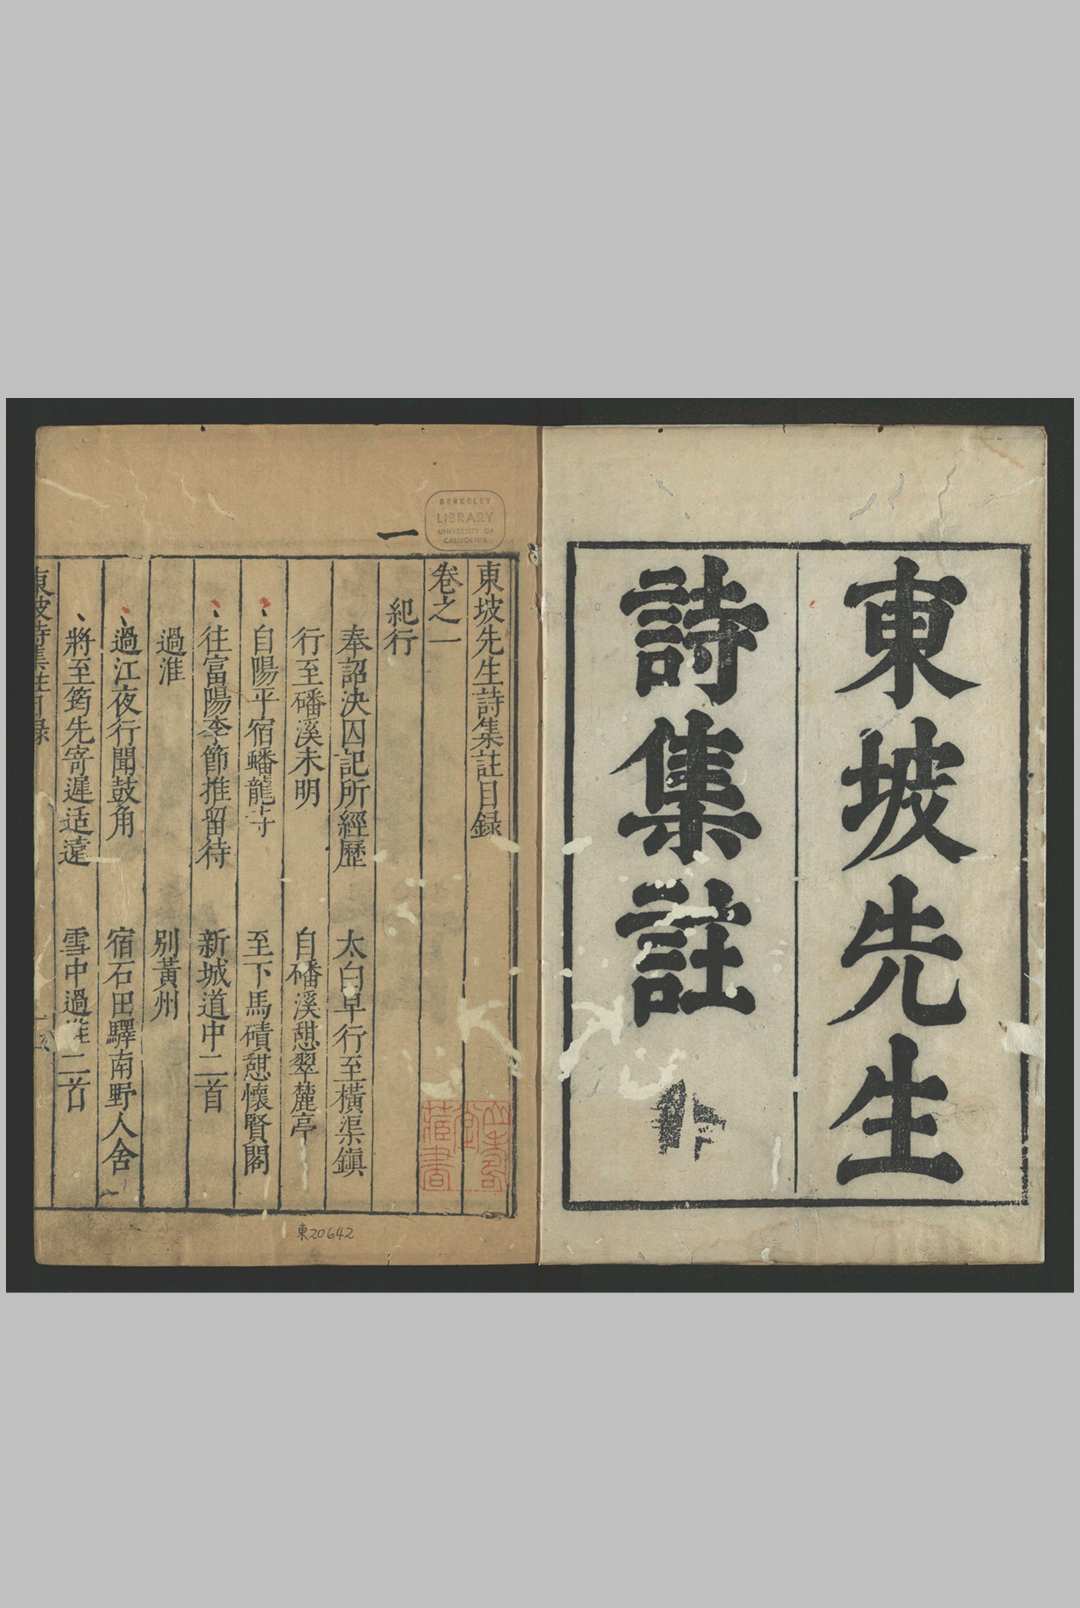 東坡先生
詩集註
BERKELEY
LIBRARY
UNIVERSITY OF
CALIFORNIA
一
東坡先生詩集註目錄
卷之一
紀行
奉詔決囚記所經歷 太白早行至橫渠鎮
行至磻溪未明 自磻溪憇翠麓亭
自陽平宿蟠龍寺 至下馬磧憇懷賢閣
往富陽李節推留待 新城道中二首
過淮 別黃州
過江夜行聞鼓角 宿石田驛南野人舍
將至筠先寄遲适遠 雪中過淮二首
東坡詩集註目錄
藏書
東20642